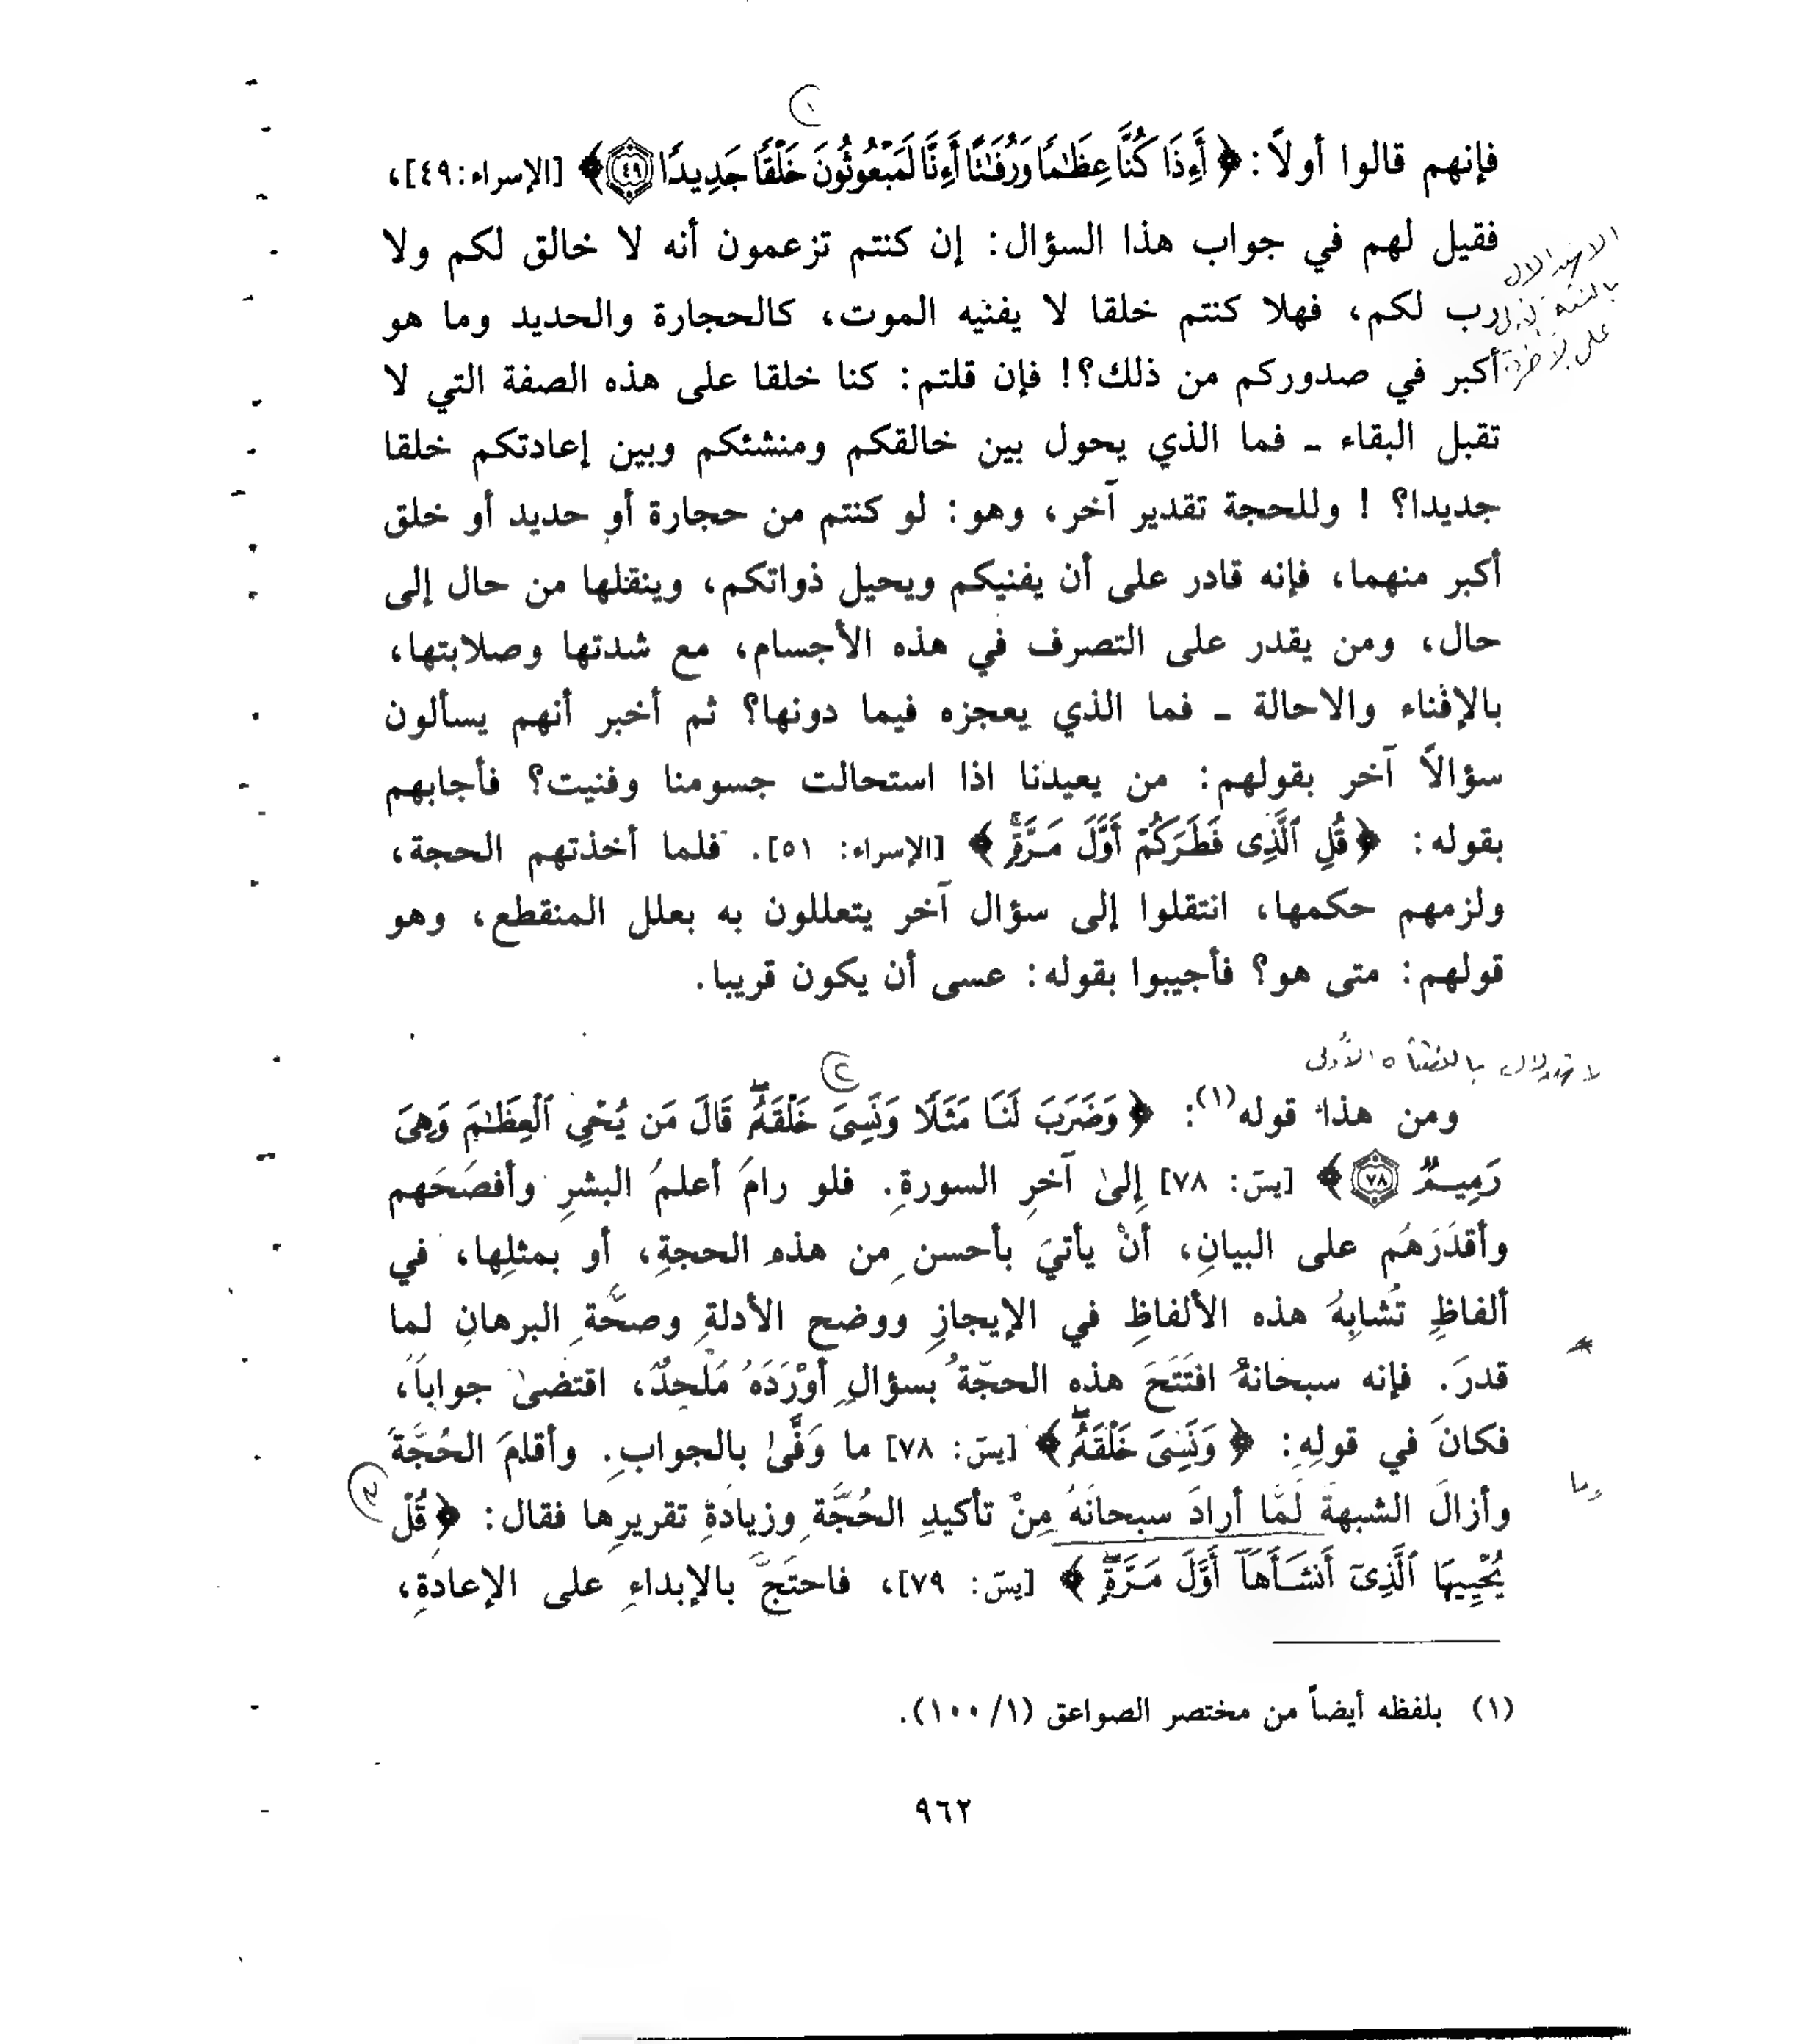 ١
فإنهم قالوا أولاً: ﴿ أَءِذَا كُنَّا عِظَٰمًا وَرُفَٰتًا أَءِنَّا لَمَبْعُوثُونَ خَلْقًا جَدِيدًا ٤٩ ﴾ [الإسراء: ٤٩]،
فقيل لهم في جواب هذا السؤال: إن كنتم تزعمون أنه لا خالق لكم ولا
رب لكم، فهلا كنتم خلقا لا يفنيه الموت، كالحجارة والحديد وما هو
أكبر في صدوركم من ذلك؟! فإن قلتم: كنا خلقا على هذه الصفة التي لا
تقبل البقاء ـ فما الذي يحول بين خالقكم ومنشئكم وبين إعادتكم خلقا
جديدا؟ ! وللحجة تقدير آخر، وهو: لو كنتم من حجارة أو حديد أو خلق
أكبر منهما، فإنه قادر على أن يفنيكم ويحيل ذواتكم، وينقلها من حال إلى
حال، ومن يقدر على التصرف في هذه الأجسام، مع شدتها وصلابتها،
بالإفناء والاحالة ـ فما الذي يعجزه فيما دونها؟ ثم أخبر أنهم يسألون
سؤالاً آخر بقولهم: من يعيدنا اذا استحالت جسومنا وفنيت؟ فأجابهم
بقوله: ﴿ قُلِ ٱلَّذِى فَطَرَكُمْ أَوَّلَ مَرَّةٍ ﴾ [الإسراء: ٥١]. فلما أخذتهم الحجة،
ولزمهم حكمها، انتقلوا إلى سؤال آخر يتعللون به بعلل المنقطع، وهو
قولهم: متى هو؟ فأجيبوا بقوله: عسى أن يكون قريبا.
الاستدلال
على
الاستدلال بالنشأة الأولى
٢
ومن هذا قوله(١): ﴿ وَضَرَبَ لَنَا مَثَلًا وَنَسِىَ خَلْقَهُۥ قَالَ مَن يُحْىِ ٱلْعِظَٰمَ وَهِىَ
رَمِيمٌ ٧٨ ﴾ [يسَ: ٧٨] إِلىٰ آخرِ السورةِ. فلو رامَ أعلمُ البشرِ وأفصَحَهم
وأقدَرَهُم على البيانِ، أنْ يأتيَ بأحسن مِن هذه الحجةِ، أو بمثلِها، في
ألفاظِ تُشابِهُ هذه الألفاظِ في الإيجازِ ووضح الأدلةِ وصحَّةِ البرهانِ لما
قدرَ. فإنه سبحانهُ افتَتَحَ هذه الحجّةُ بسؤالٍ أوْرَدَهُ مُلْحِدٌ، اقتضىٰ جواباً،
فكانَ في قولِهِ: ﴿ وَنَسِىَ خَلْقَهُۥ ﴾ [يسَ: ٧٨] ما وَفَّىٰ بالجوابِ. وأقامَ الحُجَّةَ
وأزالَ الشبهةَ لَمَّا أرادَ سبحانَهُ مِنْ تأكيدِ الحُجَّةِ وزيادَةِ تقريرِها فقال: ﴿ قُلْ
يُحْيِيهَا ٱلَّذِىٓ أَنشَأَهَآ أَوَّلَ مَرَّةٍ ﴾ [يسَ: ٧٩]، فاحتَجَّ بالإبداءِ على الإعادةِ،
(١) بلفظه أيضاً من مختصر الصواعق (١/ ١٠٠).
٩٦٢